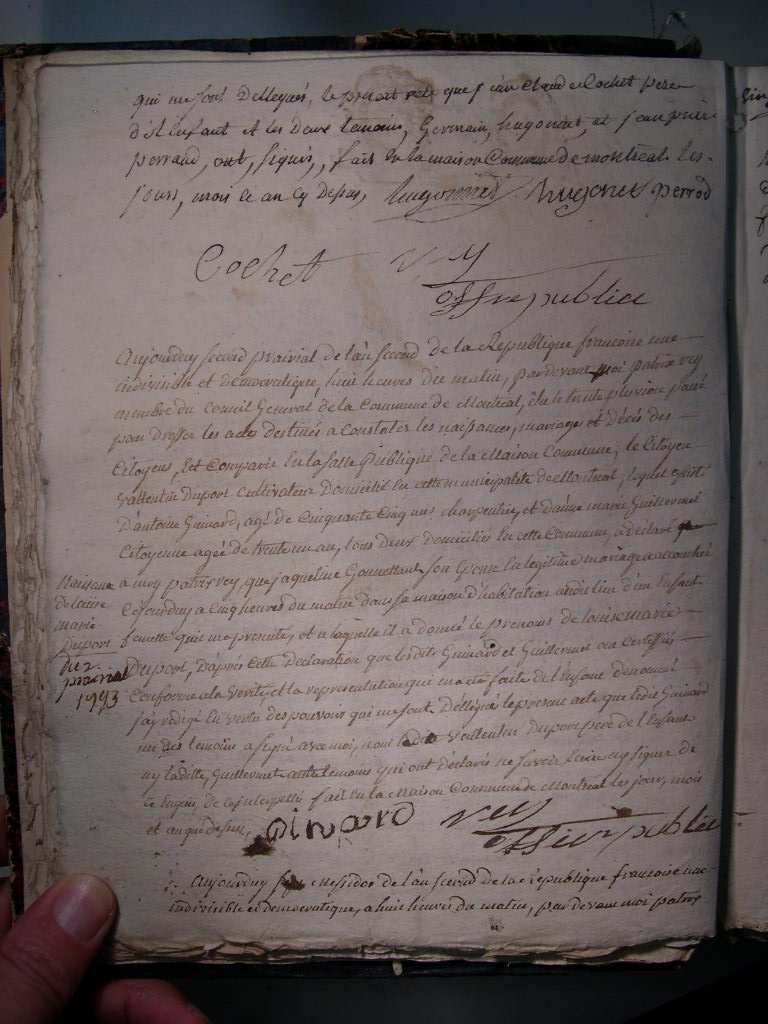 qui me sont Dellegués, le present acte que jean Claude Cochet pere
D'isl Enfant et les deux temoins, Germain, hugonnet, et jean
perraud, ont, signés,, fait En la maison Commune de montreal les
jours, mois et an Cy Depas, hugonnet hugonet perrod
Cochet vey
off publice
Aujourdhuy second prairial de l'an second de la Republique francoise une
indivisible et democratique, huit heures du matin, pardevant moi patrix vey
membre du Conseil General de la Commune de Montreal, élu le trente pluviose passé
pour dresser les actes destinés a Constater les naissances, mariages et décès des
Citoyens, Est Comparu En la salle publique de la Maison Commune, le Citoyen
vallentin Duport Cultivateur Domicilié En cette municipalité de Montreal, lequel
D'antoine Guinard, agé de Cinquante Cinq ans charpentier, et D'anne marie Guillermet
Citoyenne agée de trente un an, tous deux domiciliés En cette Commune, a declaré
a moy patrix vey, que jaqueline Gonnettant son Epouse En legitime mariage a accouché
Cejourdhuy a Cinq heures du matin dans sa maison d'habitation d'un Enfant
femelle qui me presente, et a laquelle il a donné le prenoms de louise marie
Duport, D'après Cette Declaration que lesdits Guinard et Guillermet ont Certiffiés
Conforme a la verité, et la representation qui m'a eté faite de l'Enfant denommé
j'ay redigé En vertu des pouvoirs qui me sont Dellegués le present acte que ledit Guinard
un des temoins a signé avec moi, non ledit vallentin Duport pere de l'Enfant
ny ladite, Guillermet autre temoins qui ont déclarés ne savoir Ecrire ny signer de
ce Enquis, de ce Interpellé fait En la Maison Commune de Montreal les jours, mois
et an que dessus, Ginard vey
officier publice
Naissance
de louise
marie
Duport
du 2
prairial
1793
Aujourdhuy messidor de l'an second de la Republique francoise une
indivisible et democratique, a huit heures du matin, par devant moi patrix